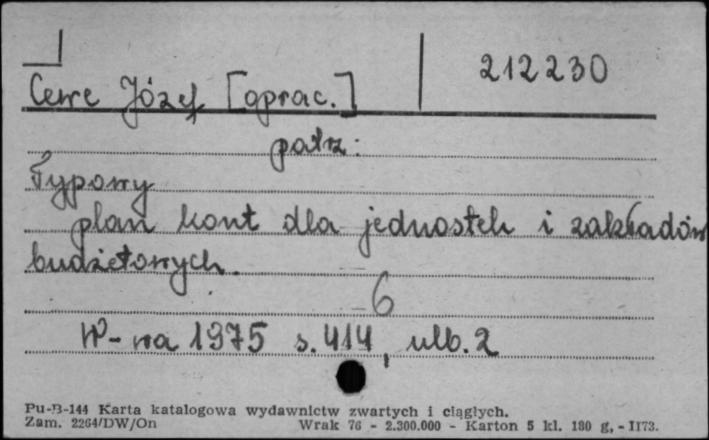 212230
Cewe Józef [oprac.]
patrz:
Typowy
plan kont dla jednostek i zakładów
budżetowych.
6
W-wa 1975 s. 414, ulb. 2
Pu-B-144 Karta katalogowa wydawnictw zwartych i ciągłych.
Zam. 2264/DW/On Wrak 76 - 2.300.000 - Karton 5 kl. 180 g. - II73.